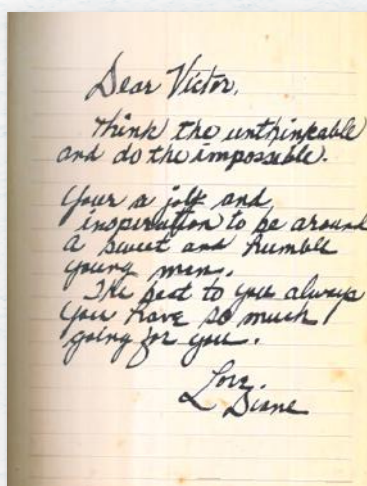 Dear Victor,
Think the unthinkable
and do the impossible.
Your a joy and
inspiration to be around
a sweet and humble
young man.
The best to you always
you have so much
going for you.
Love,
Diane